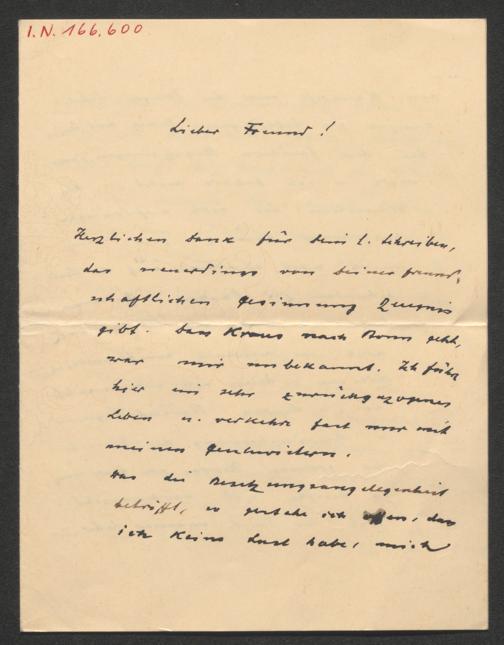 I.N. 166.600
Lieber Freund!
Herzlichen Dank für Dein l. Schreiben,
das neuerdings von Deiner freund-
schaftlichen Gesinnung Zeugnis
gibt. Dass Kraus nach Bonn geht,
war mir unbekannt. Ich führe
hier ein sehr zurückgezogenes
Leben u. verkehre fast nur mit
meinen Geschwistern.
Was die Besetzungsangelegenheit
betrifft, so gestehe ich offen, das
ich keine Lust habe, mich